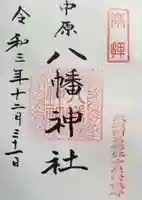 奉拝
中原
八幡神社
令和三年十二月三十一日